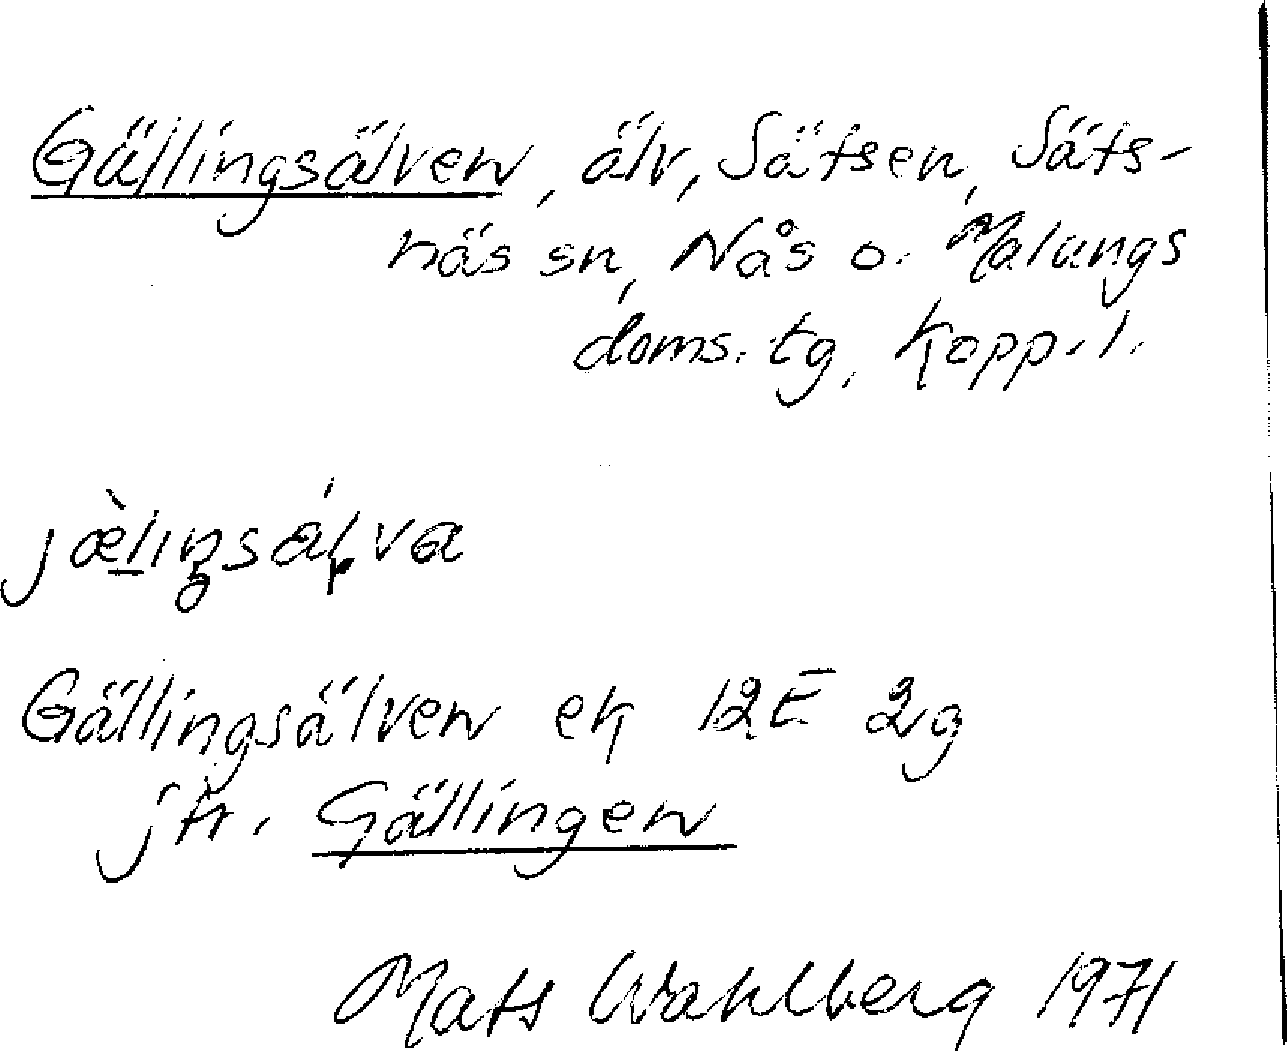 Gällingsälven, älv, Sätsen, Säts-
näs sn, Nås o. Malungs
doms. tg, Kopp. l.
Gällingsälven ek 12E 2g
jfr. Gällingen
Mats Wahlberg 1971